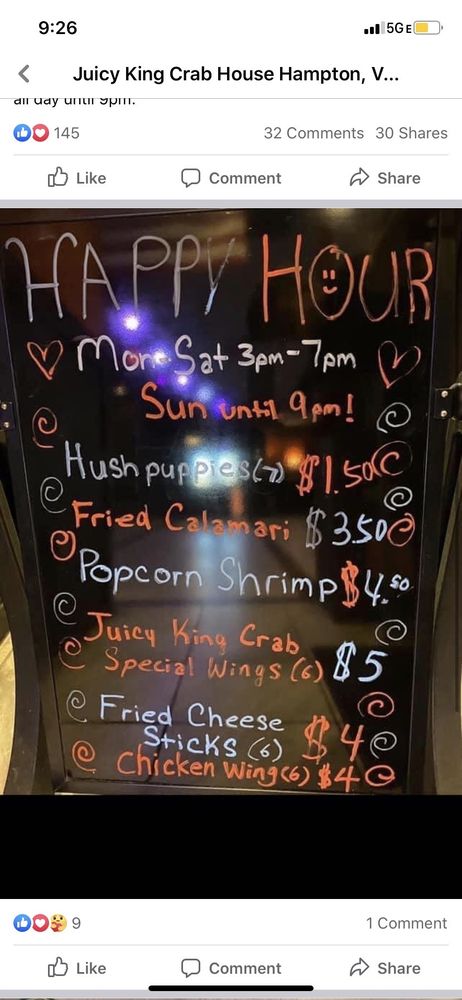 9:26
5GE
Juicy King Crab House Hampton, V...
all day until 9pm.
145
32 Comments 30 Shares
Like Comment Share
HAPPY HOUR
Mon-Sat 3pm-7pm
Sun until 9pm!
Hushpuppies(7) $1.50
Fried Calamari $3.50
Popcorn Shrimp $4.50
Juicy King Crab
Special Wings (6) $5
Fried Cheese
Sticks (6) $4
Chicken Wing(6) $4
9
1 Comment
Like Comment Share